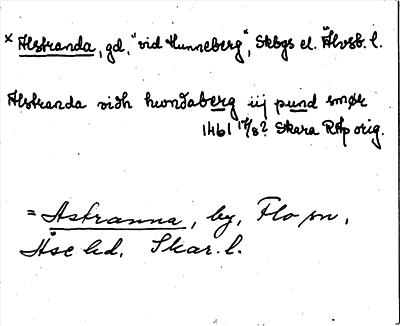 × Alstranda, gd, "vid Hunneberg", Skbgs el. Älvsb. l.
Alstranda vidh hwndaberg iij pund smør
1461 17/8? Skara RAp orig.
= Åstranna, by, Flo sn,
Åse hd. Skar. l.